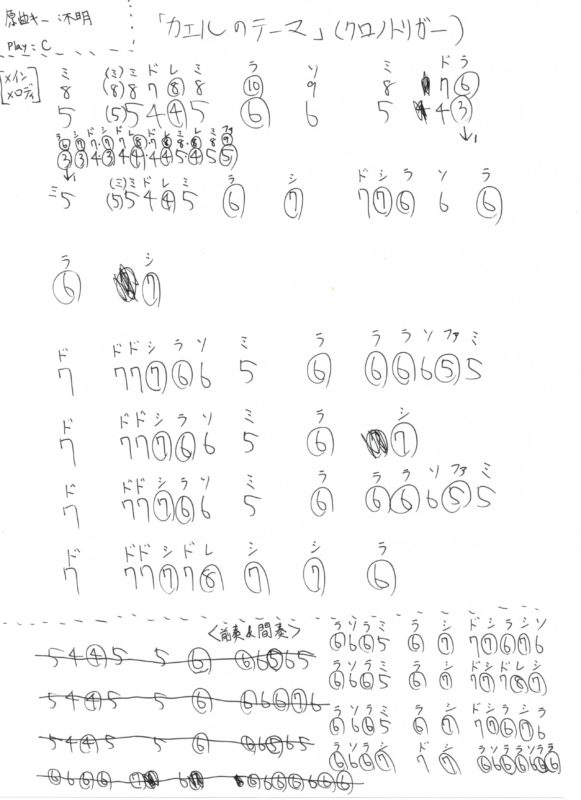 原曲キー:不明
Play:C
「カエルのテーマ」(クロノトリガー)
[メインメロディ]
ミ (ミ) ミ ド レ ミ ラ ソ ミ ド ラ
8 (8) 8 7 ⑧ 8 ⑩ 9 8 7 ⑥
5 (5) 5 4 ④ 5 ⑥ 6 5 4 ③
ラ シ ド シ ド レ ド レ ミ レ ミ ファ
⑥ ⑦ 7 ⑦ 7 ⑧ 7 ⑧ 8 ⑧ 8 ⑨
③ ③ 4 ③ 4 ④ 4 ④ 5 ④ 5 ⑤
ミ (ミ) ミ ド レ ミ ラ シ ド シ ラ ソ ラ
5 (5) 5 4 ④ 5 ⑥ ⑦ 7 ⑦ ⑥ 6 ⑥
ラ シ
⑥ ⑦
ド ド ド シ ラ ソ ミ ラ ラ ラ ソ ファ ミ
7 7 7 ⑦ ⑥ 6 5 ⑥ ⑥ ⑥ 6 ⑤ 5
ド ド ド シ ラ ソ ミ ラ シ
7 7 7 ⑦ ⑥ 6 5 ⑥ ⑦
ド ド ド シ ラ ソ ミ ラ ラ ラ ソ ファ ミ
7 7 7 ⑦ ⑥ 6 5 ⑥ ⑥ ⑥ 6 ⑤ 5
ド ド ド シ ド レ シ シ ラ
7 7 7 ⑦ 7 ⑧ ⑦ ⑦ ⑥
<前奏&間奏>
5 4 ④ 5 5 ⑥ ⑥ 6 ⑤ 6 5
5 4 ④ 5 5 ⑥ ⑥ 6 ⑥ ⑦ 6
5 4 ④ 5 5 ⑥ ⑥ 6 ⑤ 6 5
ラ ソ ラ ミ ラ シ ド シ ラ シ ソ
⑥ 6 ⑥ 5 ⑥ ⑦ 7 ⑦ ⑥ ⑦ 6
ラ ソ ラ ミ ラ シ ド シ ド レ シ
⑥ 6 ⑥ 5 ⑥ ⑦ 7 ⑦ 7 ⑧ ⑦
ラ ソ ラ ミ ラ シ ド シ ラ シ ラ
⑥ 6 ⑥ 5 ⑥ ⑦ 7 ⑦ ⑥ ⑦ 6
ラ ソ ラ シ ド シ ラ ソ ラ ラ ソ ラ ラ
⑥ 6 ⑥ ⑦ 7 ⑦ ⑥ 6 ⑥ ⑥ 6 ⑥ ⑥